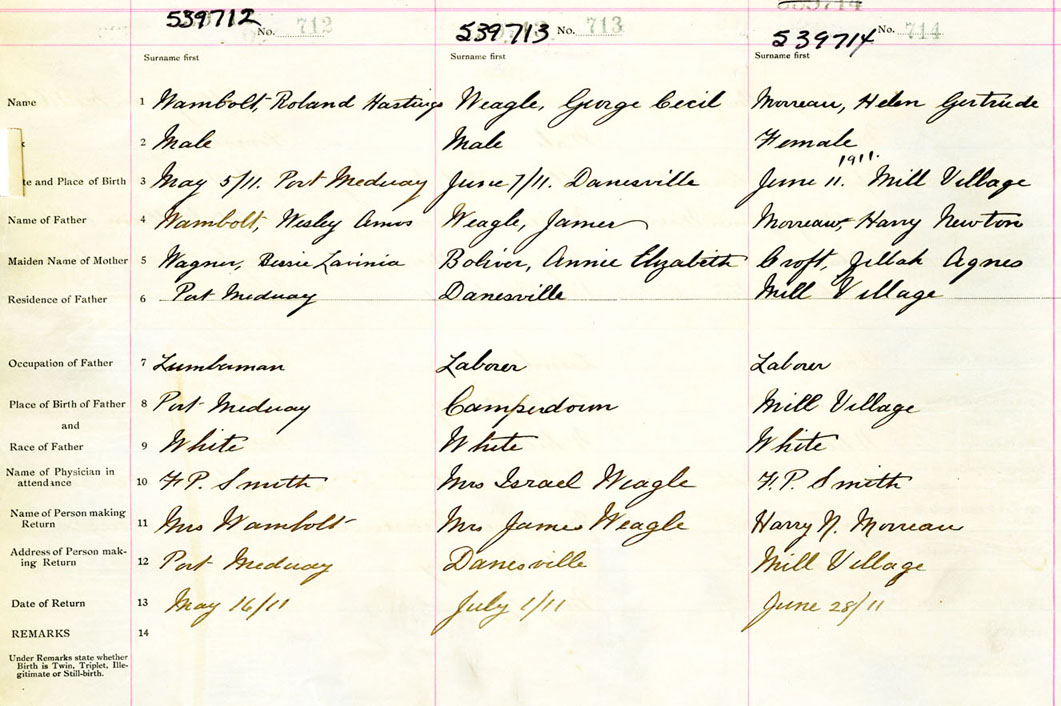 539714
539712 No. 712 539713 No. 713 539714 No. 714
Surname first Surname first Surname first
Name 1 Wambolt, Roland Hastings Weagle, George Cecil Morreau, Helen Gertrude
2 Male Male Female
te and Place of Birth 3 May 5/11. Port Medway June 7/11. Danesville June 11. 1911. Mill Village
Name of Father 4 Wambolt, Wesley Amos Weagle, James Morreau, Harry Newton
Maiden Name of Mother 5 Wagner, Bessie Lavinia Boliver, Annie Elizabeth Croft, Zillah Agnes
Residence of Father 6 Port Medway Danesville Mill Village
Occupation of Father 7 Lumberman Laborer Laborer
Place of Birth of Father 8 Port Medway Camperdown Mill Village
and
Race of Father 9 White White White
Name of Physician in
attendance 10 F.P. Smith Mrs Israel Weagle F.P. Smith
Name of Person making
Return 11 Mrs Wambolt Mrs James Weagle Harry N. Morreau
Address of Person mak-
ing Return 12 Port Medway Danesville Mill Village
Date of Return 13 May 16/11 July 1/11 June 28/11
REMARKS 14
Under Remarks state whether
Birth is Twin, Triplet, Ille-
gitimate or Still-birth.